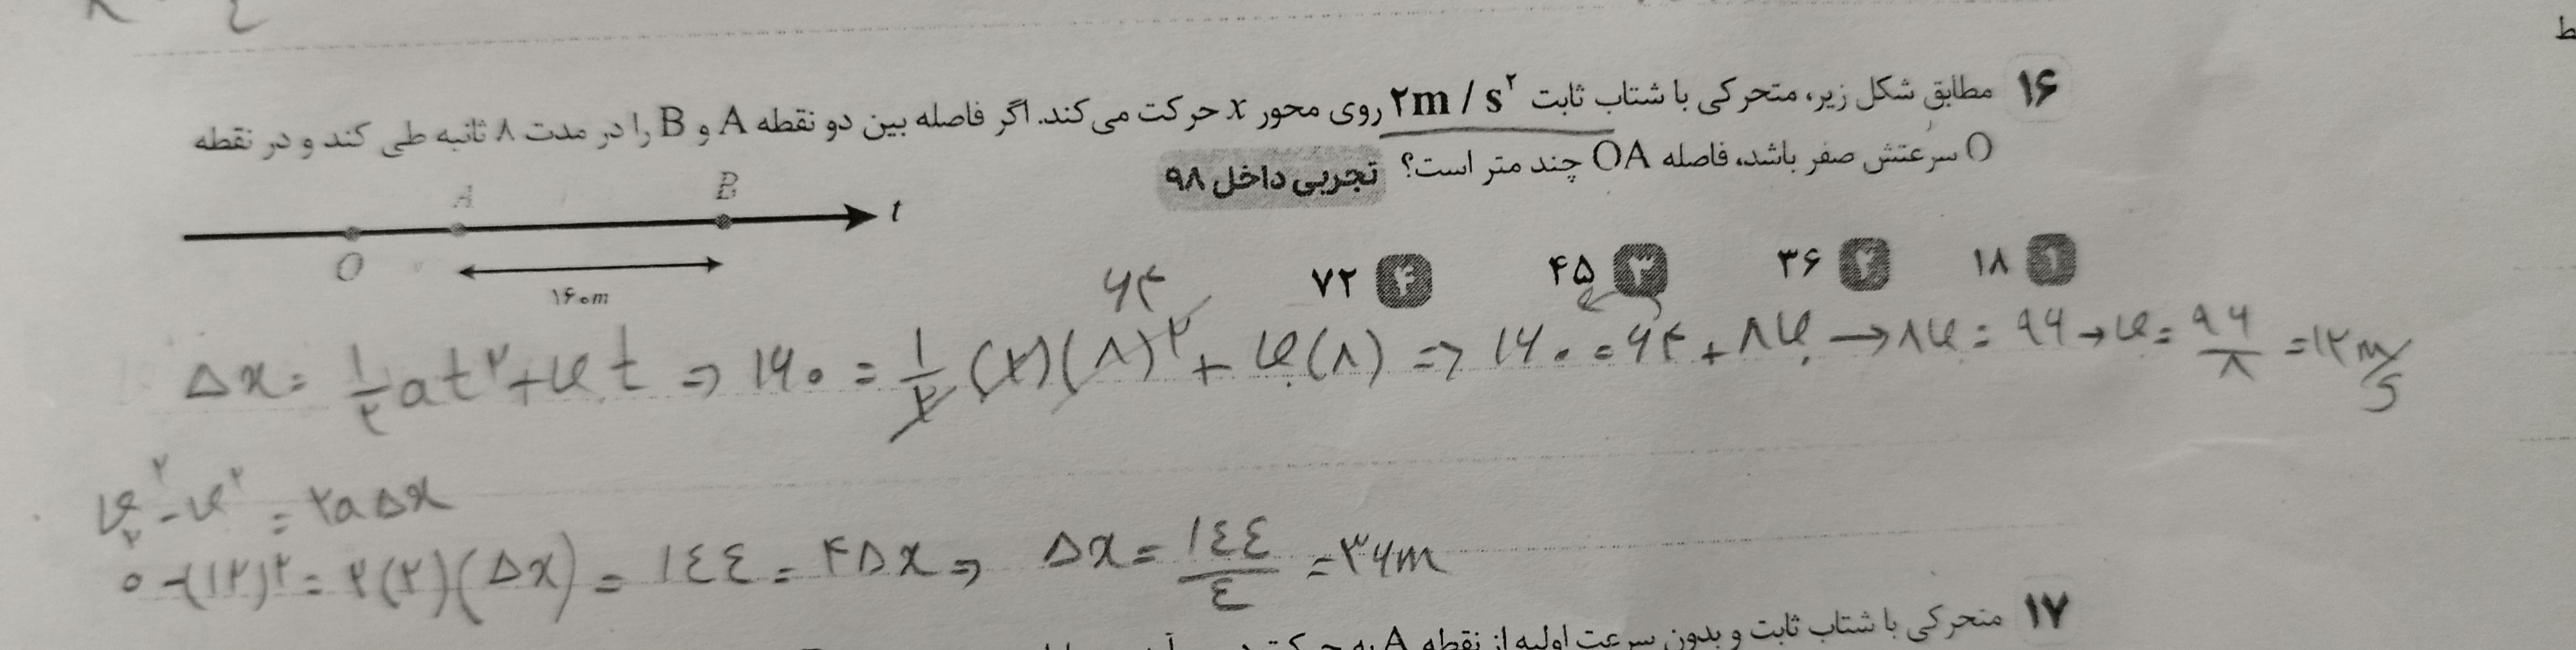 ط
۱۶ مطابق شکل زیر، متحرکی با شتاب ثابت ۲m / s^۲ روی محور x حرکت می‌کند. اگر فاصله بین دو نقطه A و B را در مدت ۸ ثانیه طی کند و در نقطه
O سرعتش صفر باشد، فاصله OA چند متر است؟ تجربی داخل ۹۸
A B t
O
۱۶۰m
۱ ۱۸ ۲ ۳۶ ۳ ۴۵ ۴ ۷۲
۶۴
Δx = ۱/۲ at^۲ + v.t => ۱۶۰ = ۱/۲ (۲)(۸)^۲ + v.(۸) => ۱۶۰ = ۶۴ + ۸v. → ۸v. = ۹۶ → v. = ۹۶/۸ = ۱۲ m/s
v.^۲ - v^۲ = ۲aΔx
۰ - (۱۲)^۲ = ۲(۲)(Δx) = ۱٤٤ = ۴Δx => Δx = ۱٤٤/٤ = ۳۶m
۱۷ متحرکی با شتاب ثابت و بدون سرعت اولیه از نقطه A به حرکت